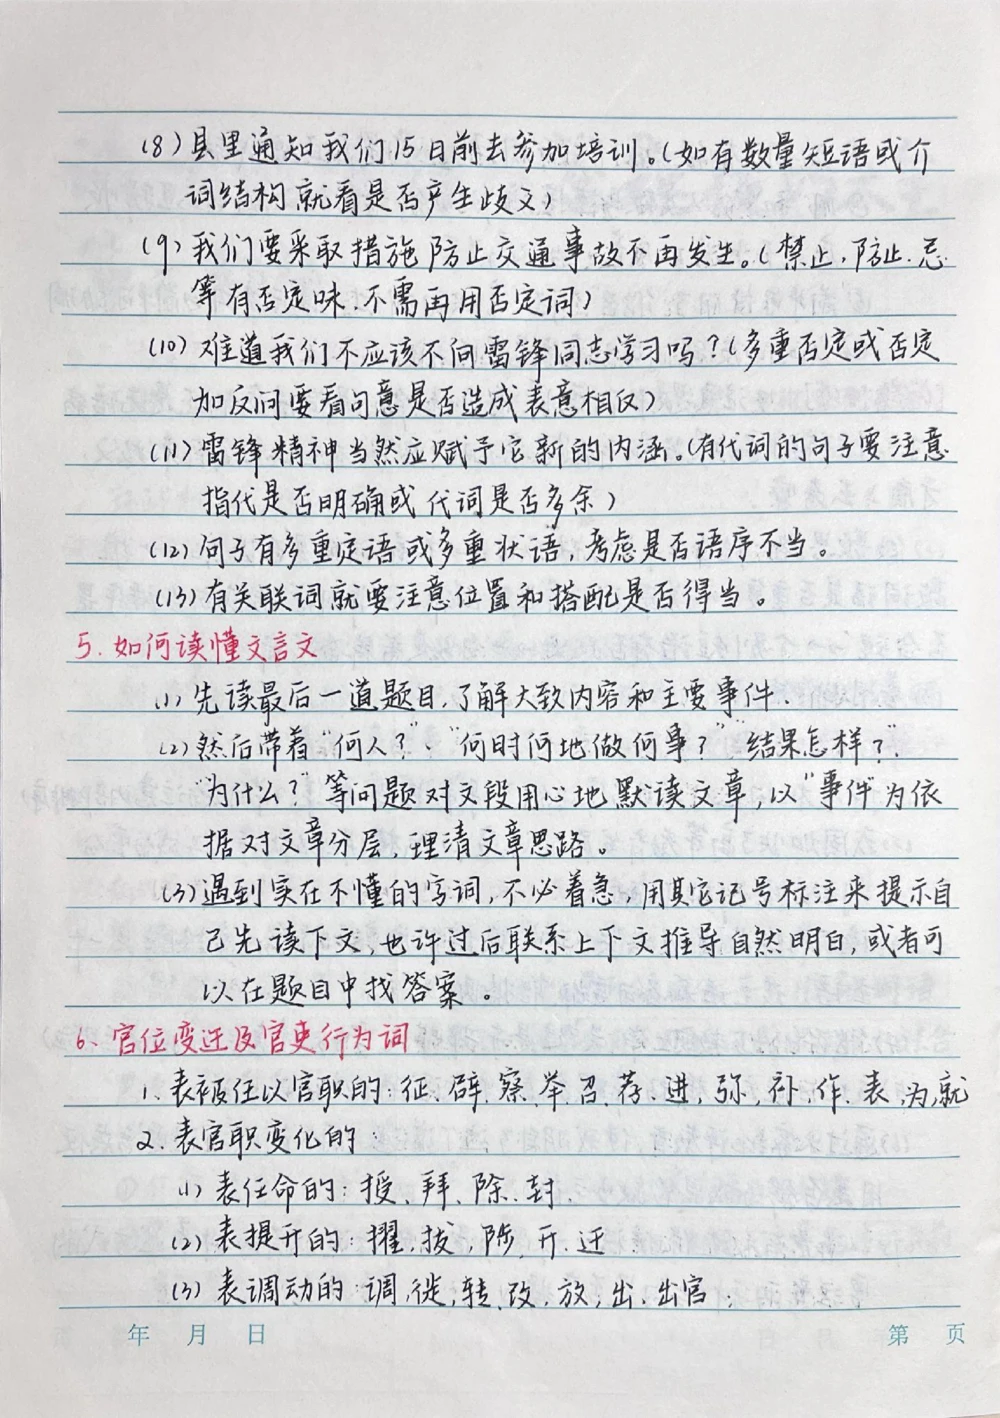 (8) 县里通知我们15日前去参加培训。(如有数量短语或介
词结构就看是否产生歧义)
(9) 我们要采取措施防止交通事故不再发生。(禁止、防止、忌
等有否定味、不需再用否定词)
(10) 难道我们不应该不向雷锋同志学习吗?(多重否定或否定
加反问要看句意是否造成表意相反)
(11) 雷锋精神当然应赋予它新的内涵。(有代词的句子要注意
指代是否明确或代词是否多余)
(12) 句子有多重定语或多重状语,考虑是否语序不当。
(13) 有关联词就要注意位置和搭配是否得当。
5. 如何读懂文言文
(1) 先读最后一道题目,了解大致内容和主要事件.
(2) 然后带着“何人?”、“何时何地做何事?”“结果怎样?”
“为什么?”等问题对文段用心地默读文章,以“事件”为依
据对文章分层,理清文章思路。
(3) 遇到实在不懂的字词,不必着急,用其它记号标注来提示自
己先读下文,也许过后联系上下文推导自然明白,或者可
以在题目中找答案。
6、官位变迁及官吏行为词
1. 表被任以官职的:征、辟、察、举、召、荐、进,弥,补、作、表,为,就
2. 表官职变化的:
(1) 表任命的:授、拜、除、封.
(2) 表提升的:擢,拔,陟、升、迁
(3) 表调动的:调,徙,转、改,放,出、出官;
年 月 日
第 页